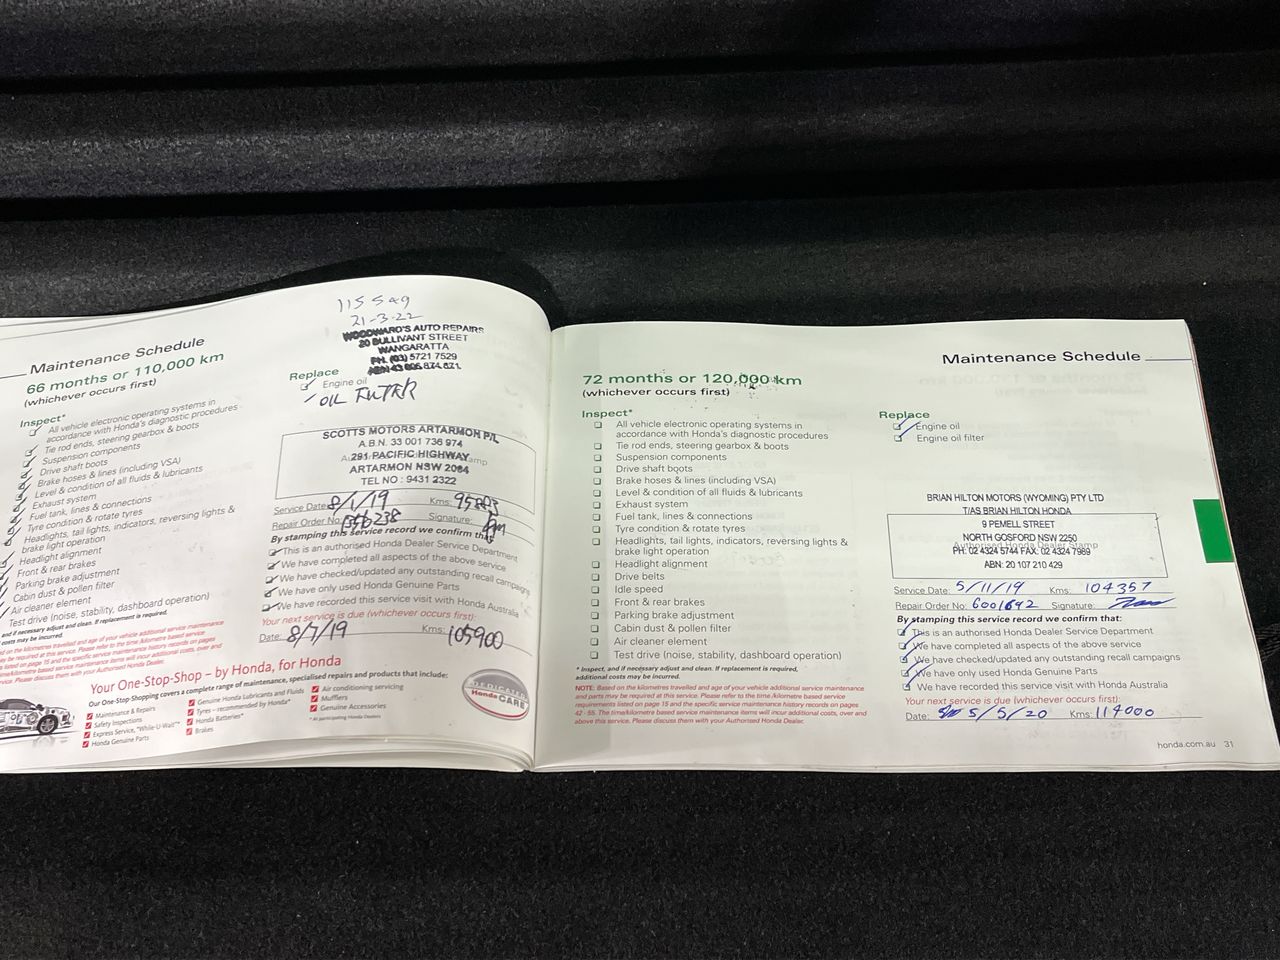 115549
21-3-22
WOODWARD'S AUTO REPAIRS
20 BULLIVANT STREET
WANGARATTA
PH. (03) 5721 7529
Maintenance Schedule
66 months or 110,000 km
(whichever occurs first)
Inspect*
All vehicle electronic operating systems in
accordance with Honda's diagnostic procedures
Tie rod ends, steering gearbox & boots
Suspension components
Drive shaft boots
Brake hoses & lines (including VSA)
Level & condition of all fluids & lubricants
Exhaust system
Fuel tank, lines & connections
Tyre condition & rotate tyres
Headlights, tail lights, indicators, reversing lights &
brake light operation
Headlight alignment
Front & rear brakes
Parking brake adjustment
Cabin dust & pollen filter
Air cleaner element
Test drive (noise, stability, dashboard operation)
and if necessary adjust and clean. If replacement is required,
costs may be incurred.
Replace
Engine oil
OIL FILTER
SCOTTS MOTORS ARTARMON P/L
A.B.N. 33 001 736 974
291 PACIFIC HIGHWAY
ARTARMON NSW 2064
TEL NO : 9431 2322
Service Date: 8/1/19 Kms: 95803
Repair Order No: Signature:
By stamping this service record we confirm that:
This is an authorised Honda Dealer Service Department
We have completed all aspects of the above service
We have checked/updated any outstanding recall campaigns
We have only used Honda Genuine Parts
We have recorded this service visit with Honda Australia
Your next service is due (whichever occurs first):
Date: 8/7/19 Kms: 105900
Your One-Stop-Shop – by Honda, for Honda
Our One-Stop-Shopping covers a complete range of maintenance, specialised repairs and products that include:
Maintenance & Repairs
Safety Inspections
Express Service, "While-U-Wait"*
Honda Genuine Parts
Genuine Honda Lubricants and Fluids
Tyres – recommended by Honda*
Honda Batteries*
Brakes
Air conditioning servicing
Mufflers
Genuine Accessories
* At participating Honda Dealers
DEDICATED
HondaCARE
Maintenance Schedule
72 months or 120,000 km
(whichever occurs first)
Inspect*
All vehicle electronic operating systems in
accordance with Honda's diagnostic procedures
Tie rod ends, steering gearbox & boots
Suspension components
Drive shaft boots
Brake hoses & lines (including VSA)
Level & condition of all fluids & lubricants
Exhaust system
Fuel tank, lines & connections
Tyre condition & rotate tyres
Headlights, tail lights, indicators, reversing lights &
brake light operation
Headlight alignment
Drive belts
Idle speed
Front & rear brakes
Parking brake adjustment
Cabin dust & pollen filter
Air cleaner element
Test drive (noise, stability, dashboard operation)
* Inspect, and if necessary adjust and clean. If replacement is required,
additional costs may be incurred.
NOTE: Based on the kilometres travelled and age of your vehicle additional service maintenance
and parts may be required at this service. Please refer to the time /kilometre based service
requirements listed on page 15 and the specific service maintenance history records on pages
42 - 55. The time/kilometre based service maintenance items will incur additional costs, over and
above this service. Please discuss them with your Authorised Honda Dealer.
Replace
Engine oil
Engine oil filter
BRIAN HILTON MOTORS (WYOMING) PTY LTD
T/AS BRIAN HILTON HONDA
9 PEMELL STREET
NORTH GOSFORD NSW 2250
Authorised Honda Dealer Stamp
PH: 02 4324 5744 FAX: 02 4324 7989
ABN: 20 107 210 429
Service Date: 5/11/19 104357
Repair Order No: 6001692 Signature:
By stamping this service record we confirm that:
This is an authorised Honda Dealer Service Department
We have completed all aspects of the above service
We have checked/updated any outstanding recall campaigns
We have only used Honda Genuine Parts
We have recorded this service visit with Honda Australia
Your next service is due (whichever occurs first):
Date: 5/5/20 Kms: 114000
honda.com.au 31